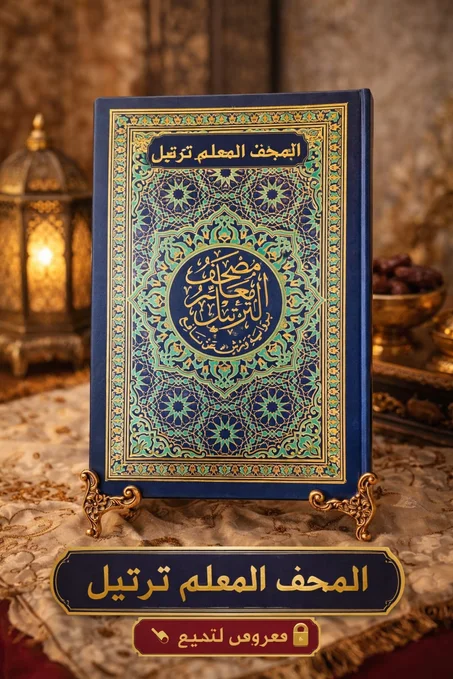 المحف المعلم ترتيل
مصحف
تعليم
الترتيل
المحف المعلم ترتيل
معروص لتحيع